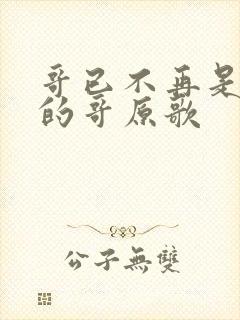 哥已不再是
的哥原歌
公子無雙